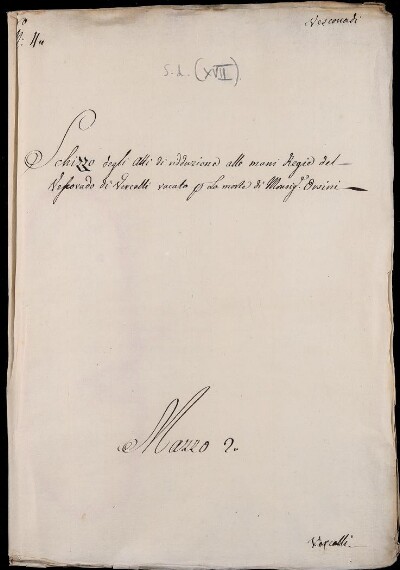 Vescovadi
N: 4
S. d. (XVII).
Schizzo degli Atti di riduzione alle mani Regie del
Vescovado di Vercelli vacato p la morte di Monsig.r
Mazzo 2.
Vercelli